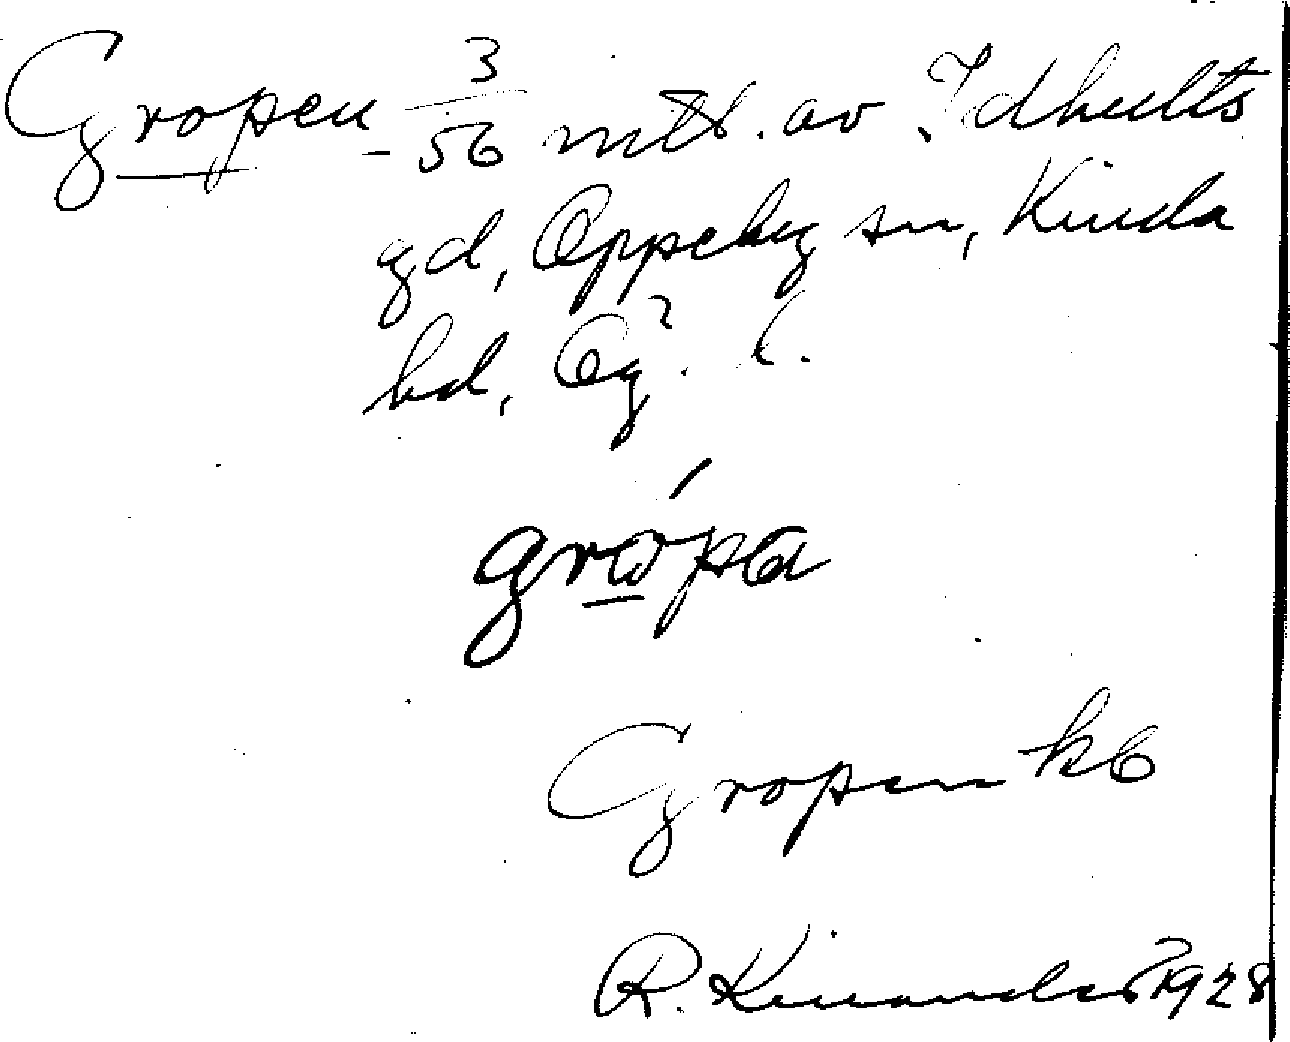 Gropen 3/56 mtl. av Idhults
gd, Oppeby sn, Kinda
hd, Ög. l.
grópa
Gropen kb
R. Kinander 1928